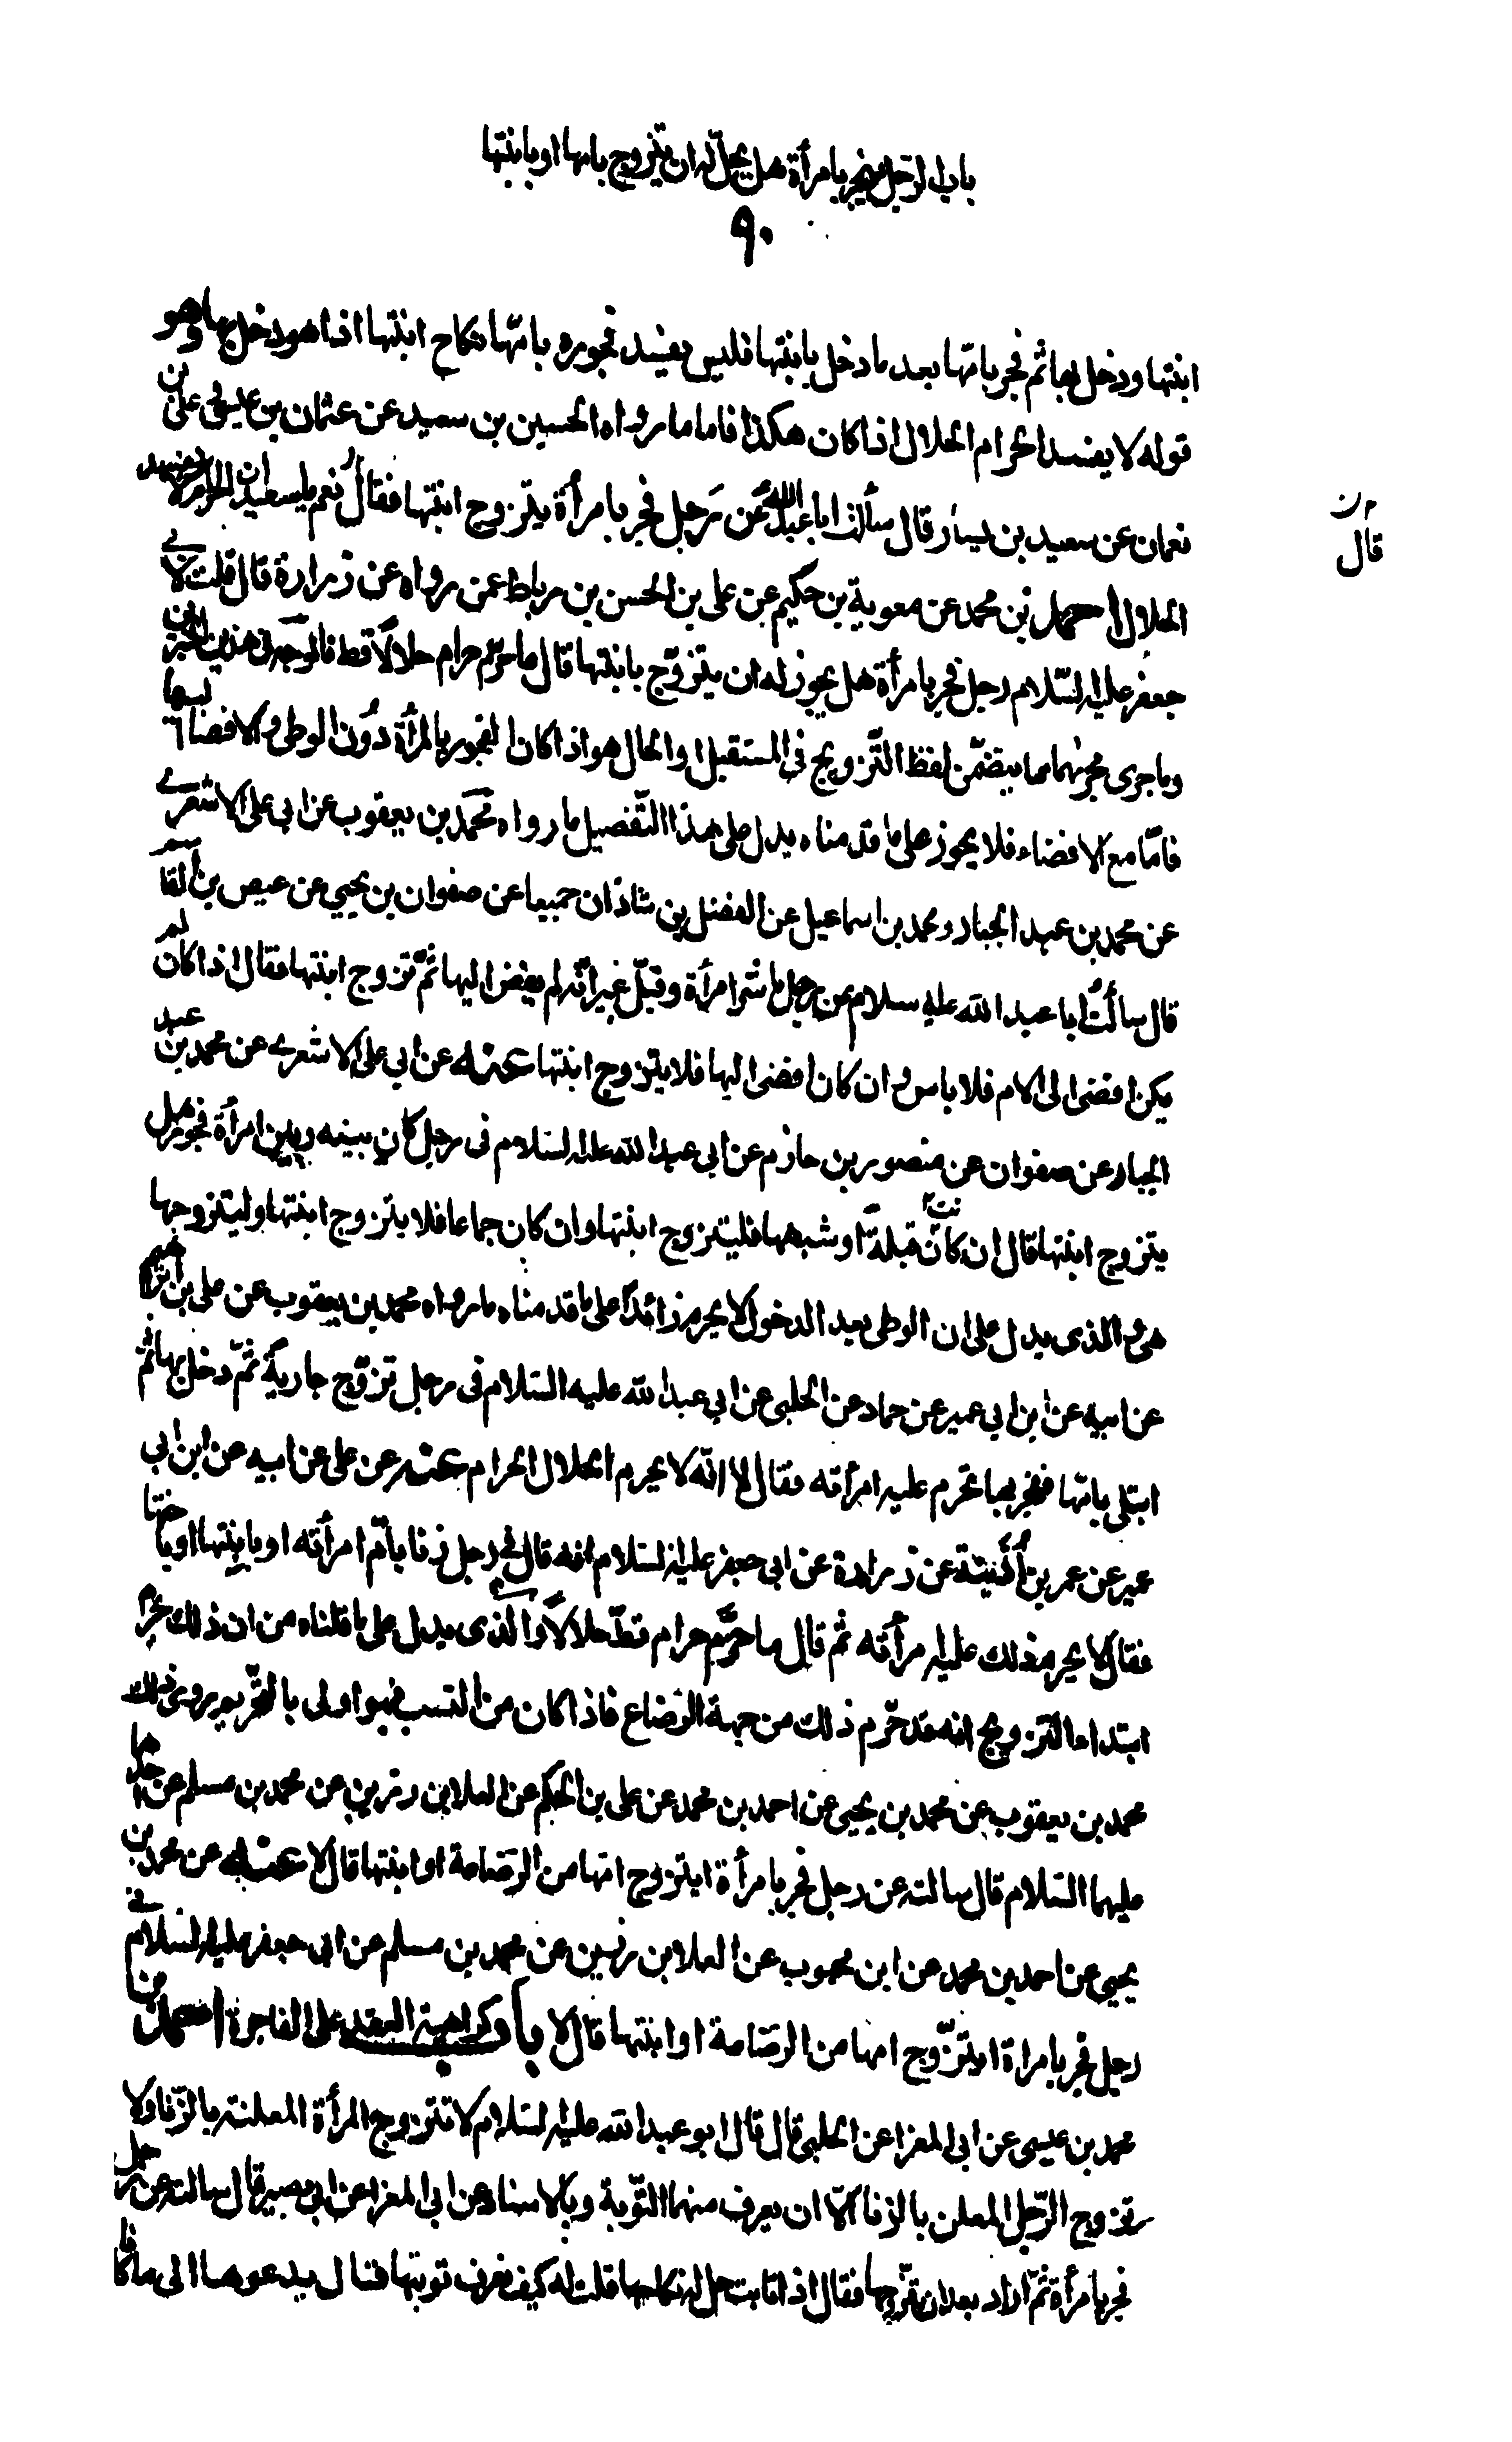 باب الرجل يفجر بامرأة هل يحل له ان يتزوج بامها او بابنتها
٩٠
ابنتها ودخل بها ثم فجر بامّها بعد ما دخل بابنتها فليس يفسد فجوره بامّها نكاح ابنتها اذا هو دخل بها وهو
قوله لا يفسد الحرام الحلال اذا كان هكذا فاما ما رواه الحسين بن سعيد عن عثمان بن عيسى عن علي بن
نعمان عن سعيد بن يسار قال سألت ابا عبد الله عن رجل فجر بامرأة يتزوج ابنتها فقال نعم يا سعيد ان الحرام لا يفسد
م ن
قال
الحلال احمد بن محمد عن معوية بن حكيم عن على بن الحسن بن رباط عمن رواه عن زرارة قال قلت لابي
جعفر عليه السّلام رجل فجر بامرأة هل يجوز له ان يتزوّج بابنتها قال ما حرّم حرام حلالًا قط فالوجه في هذين الخبرين
وما جرى مجريهما مما يتضمّن لفظ التّزويج في المستقبل او الحال هو اذا كان الفجور بالمرأة دُون الوطى والافضاء اليها
فامّا مع الافضاء فلا يجوز على ما قدمناه يدل على هذا التّفصيل ما رواه محمّد بن يعقوب عن ابى على الاشعرى
عن محمد بن عبد الجبار ومحمد بن اسماعيل عن الفضل بن شاذان جميعا عن صفوان بن يحيي عن عيص بن القاسم
قال سألت ابا عبد الله عليه سلام عن رجل باشر امرأة وقبّل غير انّه لم يفض اليها ثمّ تزوج ابنتها فقال اذا كان لم
يكن افضى الى الام فلا باس وان كان افضى اليها فلا يتزوج ابنتها عنه عن ابي على الاشعرى عن محمد بن عبد
الجبار عن صفوان عن منصور بن حازم عن ابي عبد الله عليه السّلام في رجل كان بينه وبين امرأة فجور هل
يتزوج ابنتها قال ان كانت قبلةً او شبهها فليتزوج ابنتها وان كان جماعا فلا يتزوج ابنتها وليتزوجها
هى والذى يدل على ان الوطى بعد الدخول لا يحرم زائدًا على ما قدمناه ما رواه محمد بن يعقوب عن على بن ابراهيم
عن ابيه عن ابن ابي عمير عن حماد عن الحلبى عن ابي عبد الله عليه السّلام فى رجل تزوّج جارية ثمّ دخل بها ثم
ابتلى بامّها ففجر بها تحرم عليه امرأته فقال لا انّه لا يحرم الحلال الحرام عنه عن على عن ابيه عن ابن ابي
عمير عن عمر بن أذينة عن زرارة عن ابى جعفر عليه السّلام انه قال في رجل زنا بامّ امرأته او بابنتها او باختها
فقال لا يحرم ذلك عليه امرأته ثم قال ما حرّم حرام قطّ حلالًا والذى يدل على ما قلناه من ان ذلك يحرم
ابتداء التزويج انه قد حرّم ذلك من جهة الرّضاع فاذا كان من النسب فهو اولى بالتّحريم روى ذلك
محمد بن يعقوب عن محمد بن يحيى عن احمد بن محمد عن على بن الحكم عن العلا بن رزين عن محمد بن مسلم عن احدهما
عليهما السّلام قال سالته عن رجل فجر بامرأة ايتزوج امّها من الرّضاعة او ابنتها قال لا عنه عن محمد بن
يحيى عن احمد بن محمد عن ابن محبوب عن العلا بن رزين عن محمد بن مسلم عن ابى جعفر عليه السّلام في
رجل فجر بامراة ايتزّوج امها من الرّضاعة او ابنتها قال لا باب كراهية العقد على الفاجرة احمد بن
محمد بن عيسى عن ابى المعزا عن الحلبى قال قال ابو عبد الله عليه السّلام لا تتزوج المرأة المعلنة بالزّنا ولا
يتزوج الرّجل المعلن بالزنا الّا ان يعرف منهما التّوبة وبالاسناد عن ابى المعزا عن ابى بصير قال سالته عن رجل
فجر بامرأة ثمّ اراد بعد ان يتزّوجها فقال اذا تابت حل له نكاحها قلت له كيف نعرف توبتها فقال يدعوها الى ما كانا